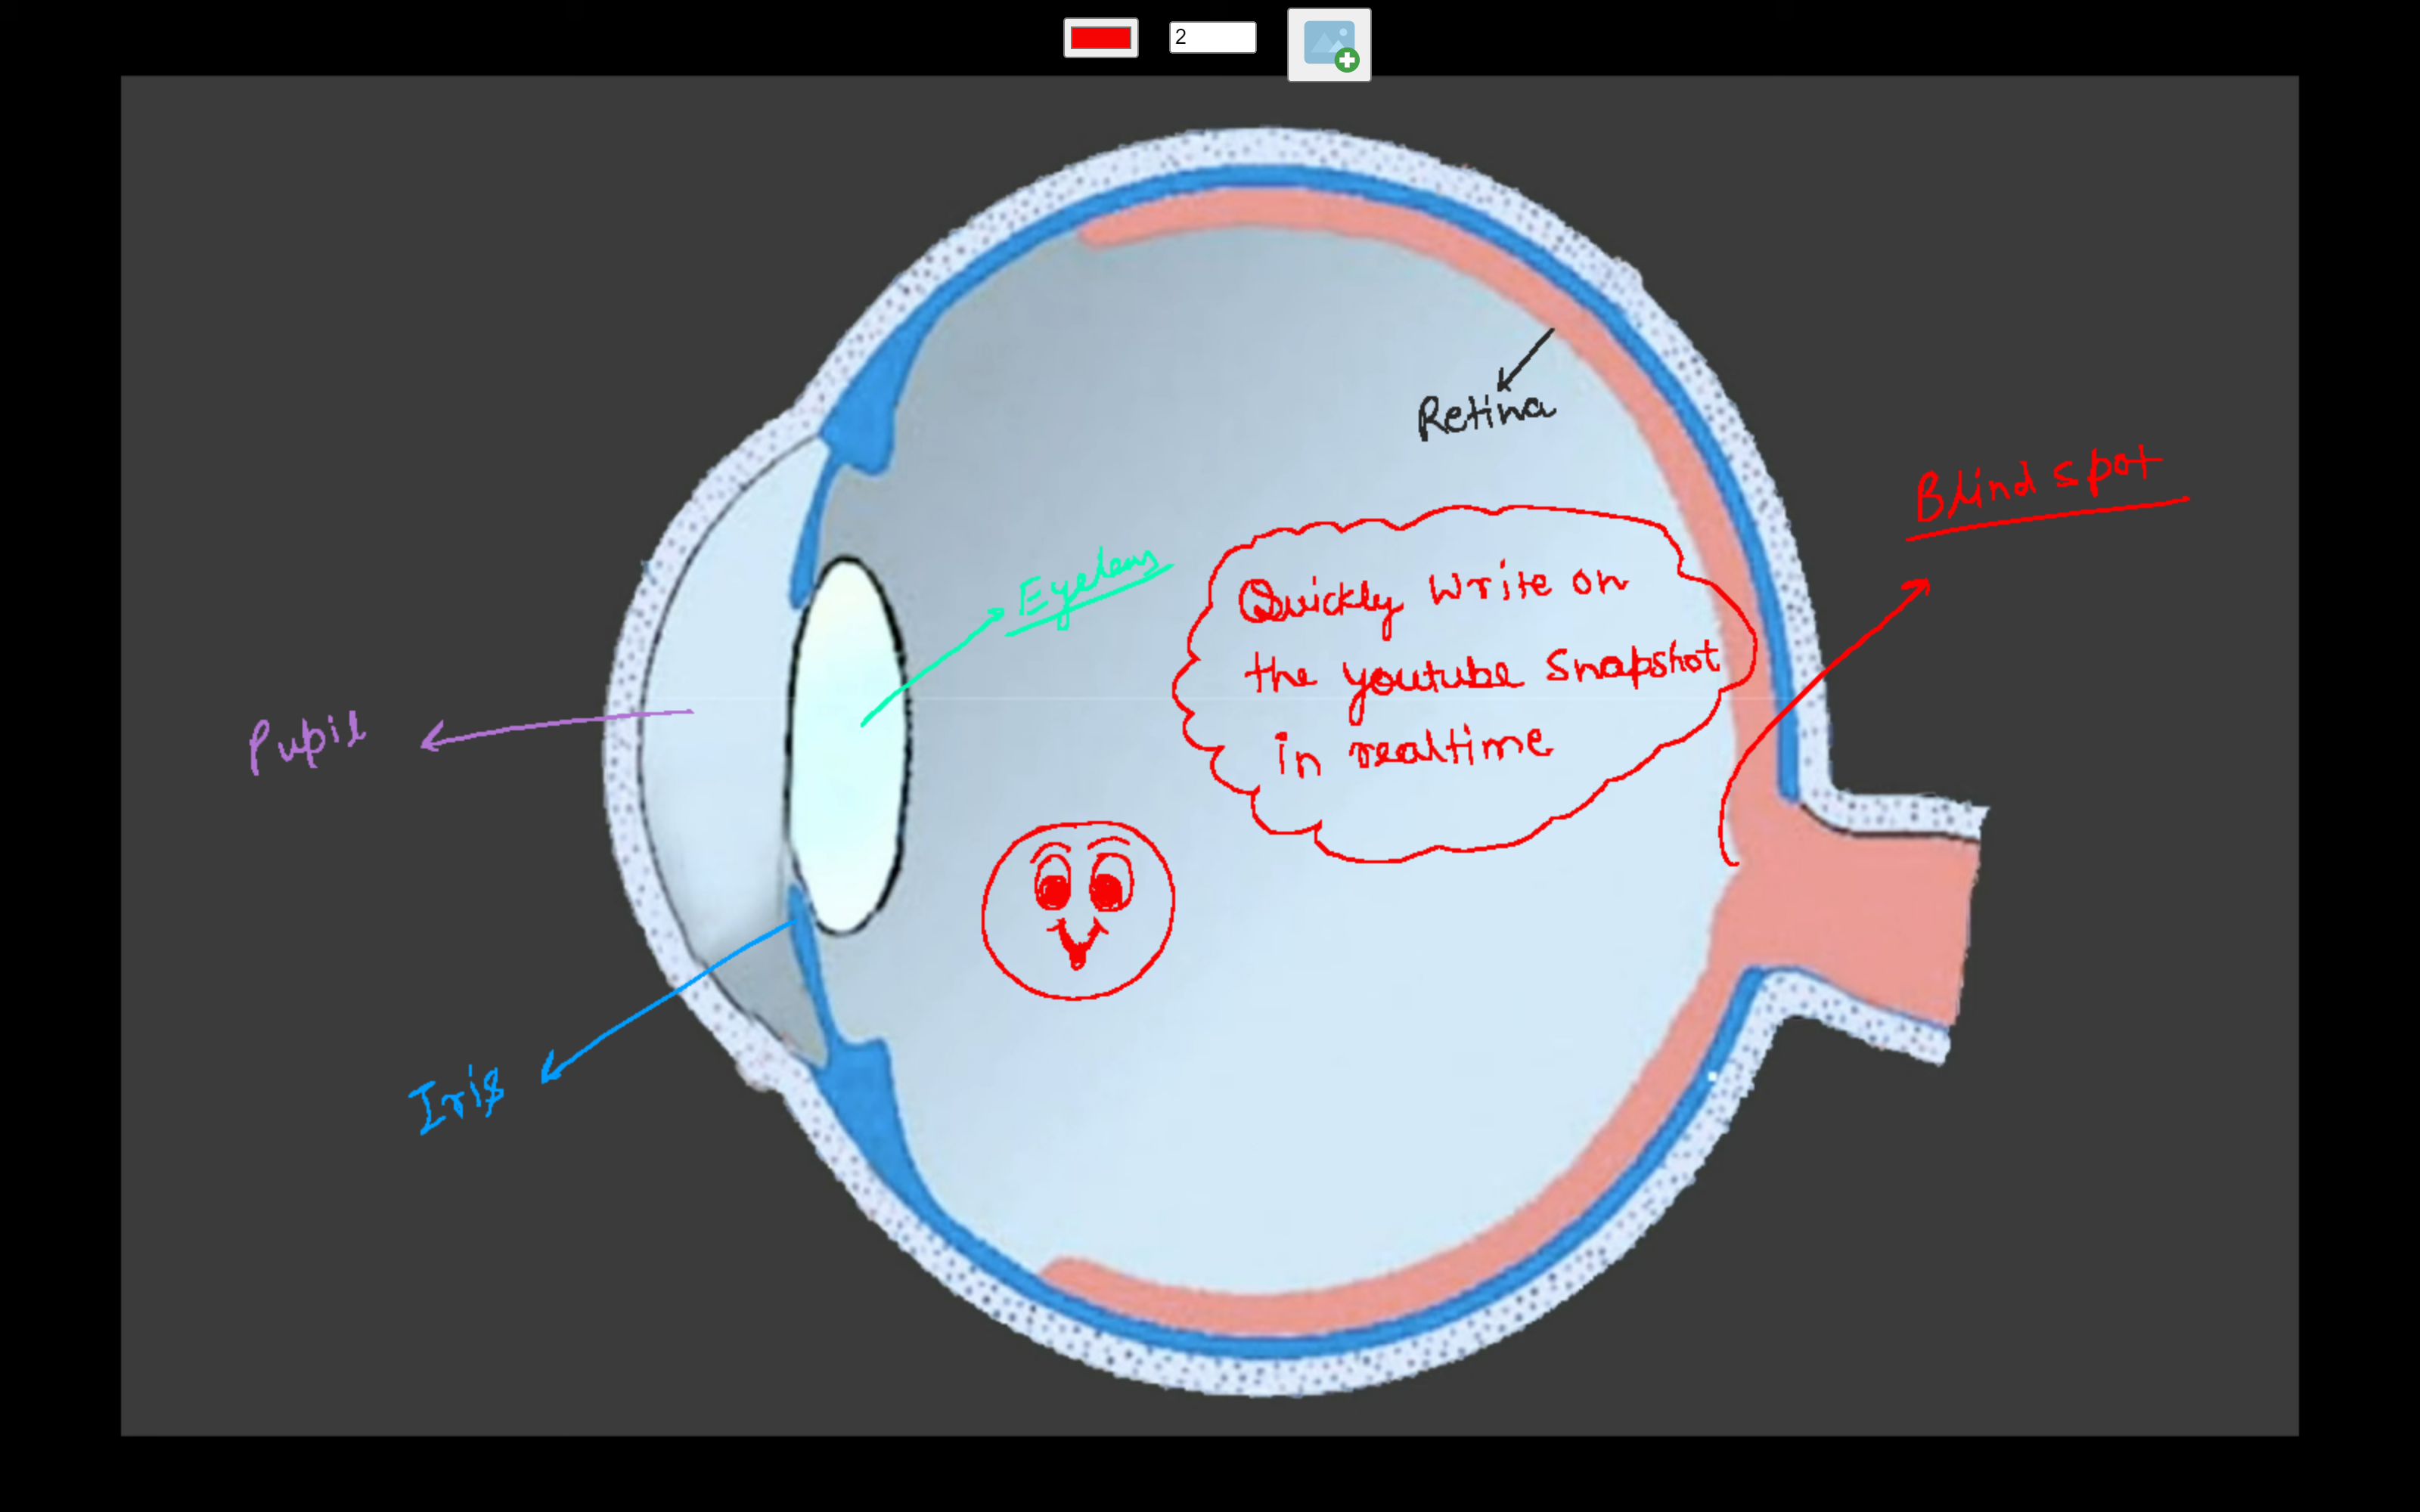 2
Retina
Blind spot
Eyelens
Quickly write on
the youtube snapshot
in realtime
Pupil
Iris